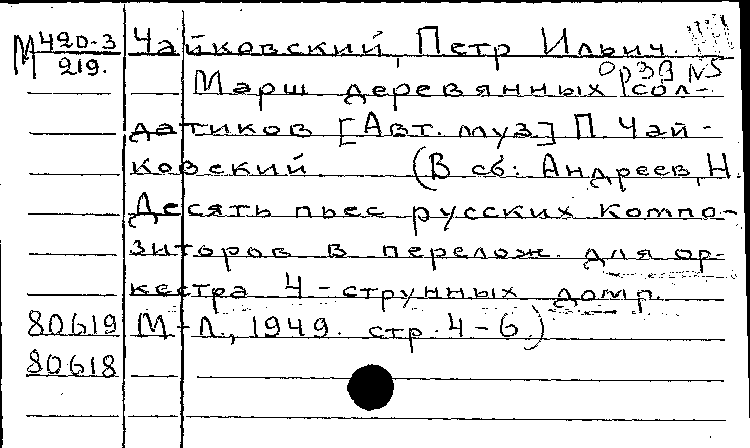 М 420-3 Чайковский, Петр Ильич.
219. ОрЗВ N5
Марш деревянных сол-
датиков [Авт. муз.] П. Чай-
ковский (В сб: Андреев, Н.
Десять пьес русских компо-
зиторов в перелож. для ор-
кестра 4-струнных домр.
80619 М-Л., 1949. стр. 4-6.)
80618